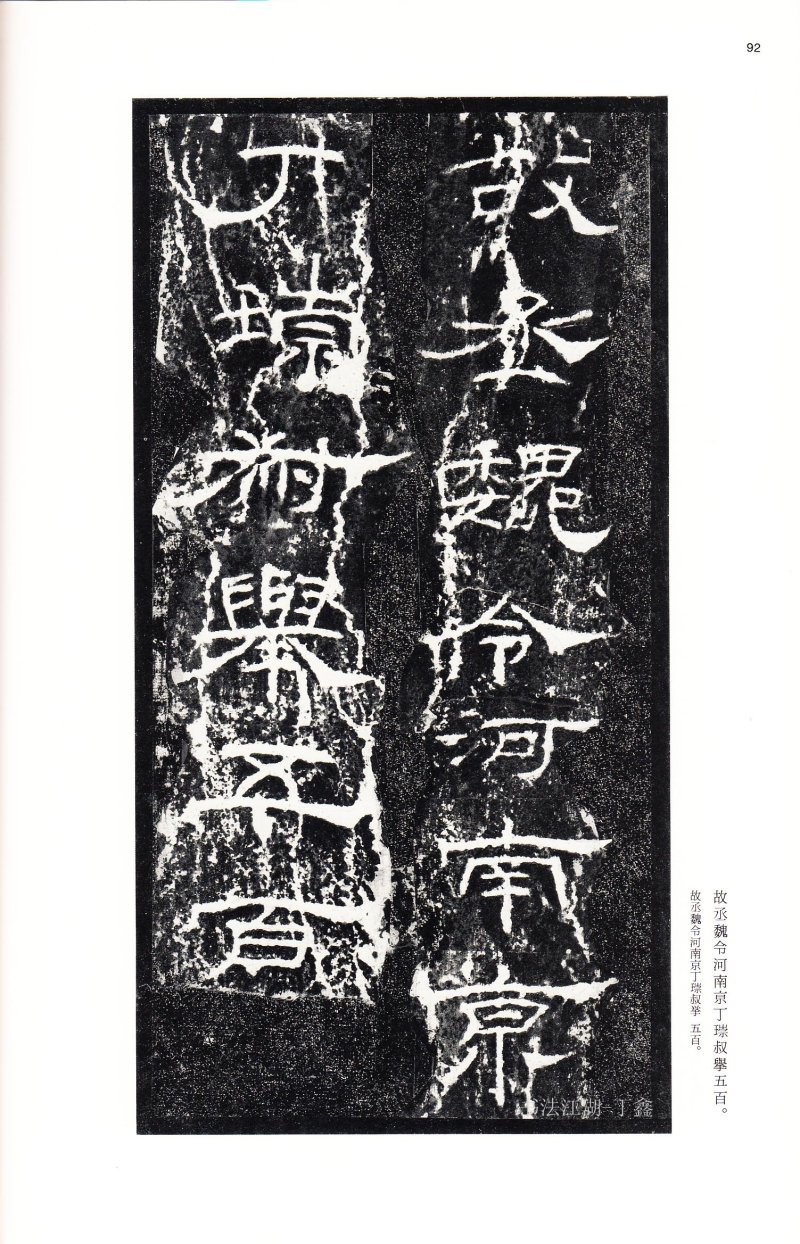 92
故丞魏令河南京
丁琮叔舉五百
故丞魏令河南京丁琮叔擧五百。
故丞魏令河南京丁琮叔挙 五百。
法江湖-丁鑫